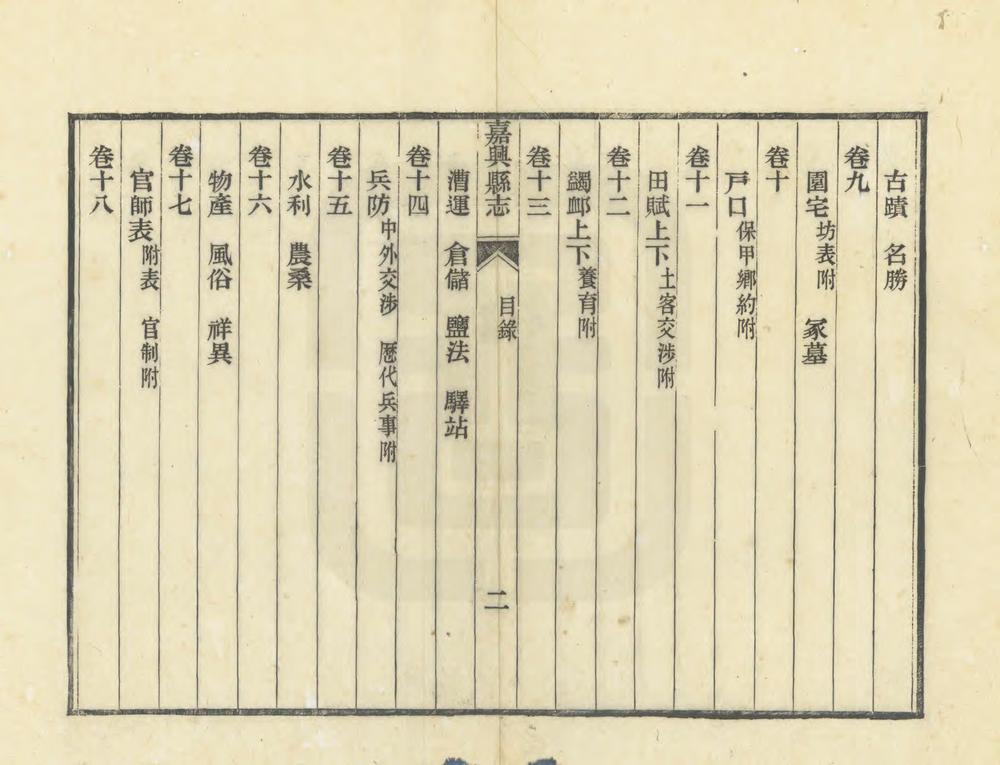 古蹟　名勝
卷九
園宅坊表附　冢墓
卷十
戸口保甲鄉約附
卷十一
田賦上下土客交涉附
卷十二
蠲卹上下養育附
卷十三
嘉興縣志　目錄　二
漕運　倉儲　鹽法　驛站
卷十四
兵防中外交涉　歷代兵事附
卷十五
水利　農桑
卷十六
物產　風俗　祥異
卷十七
官師表附表　官制附
卷十八